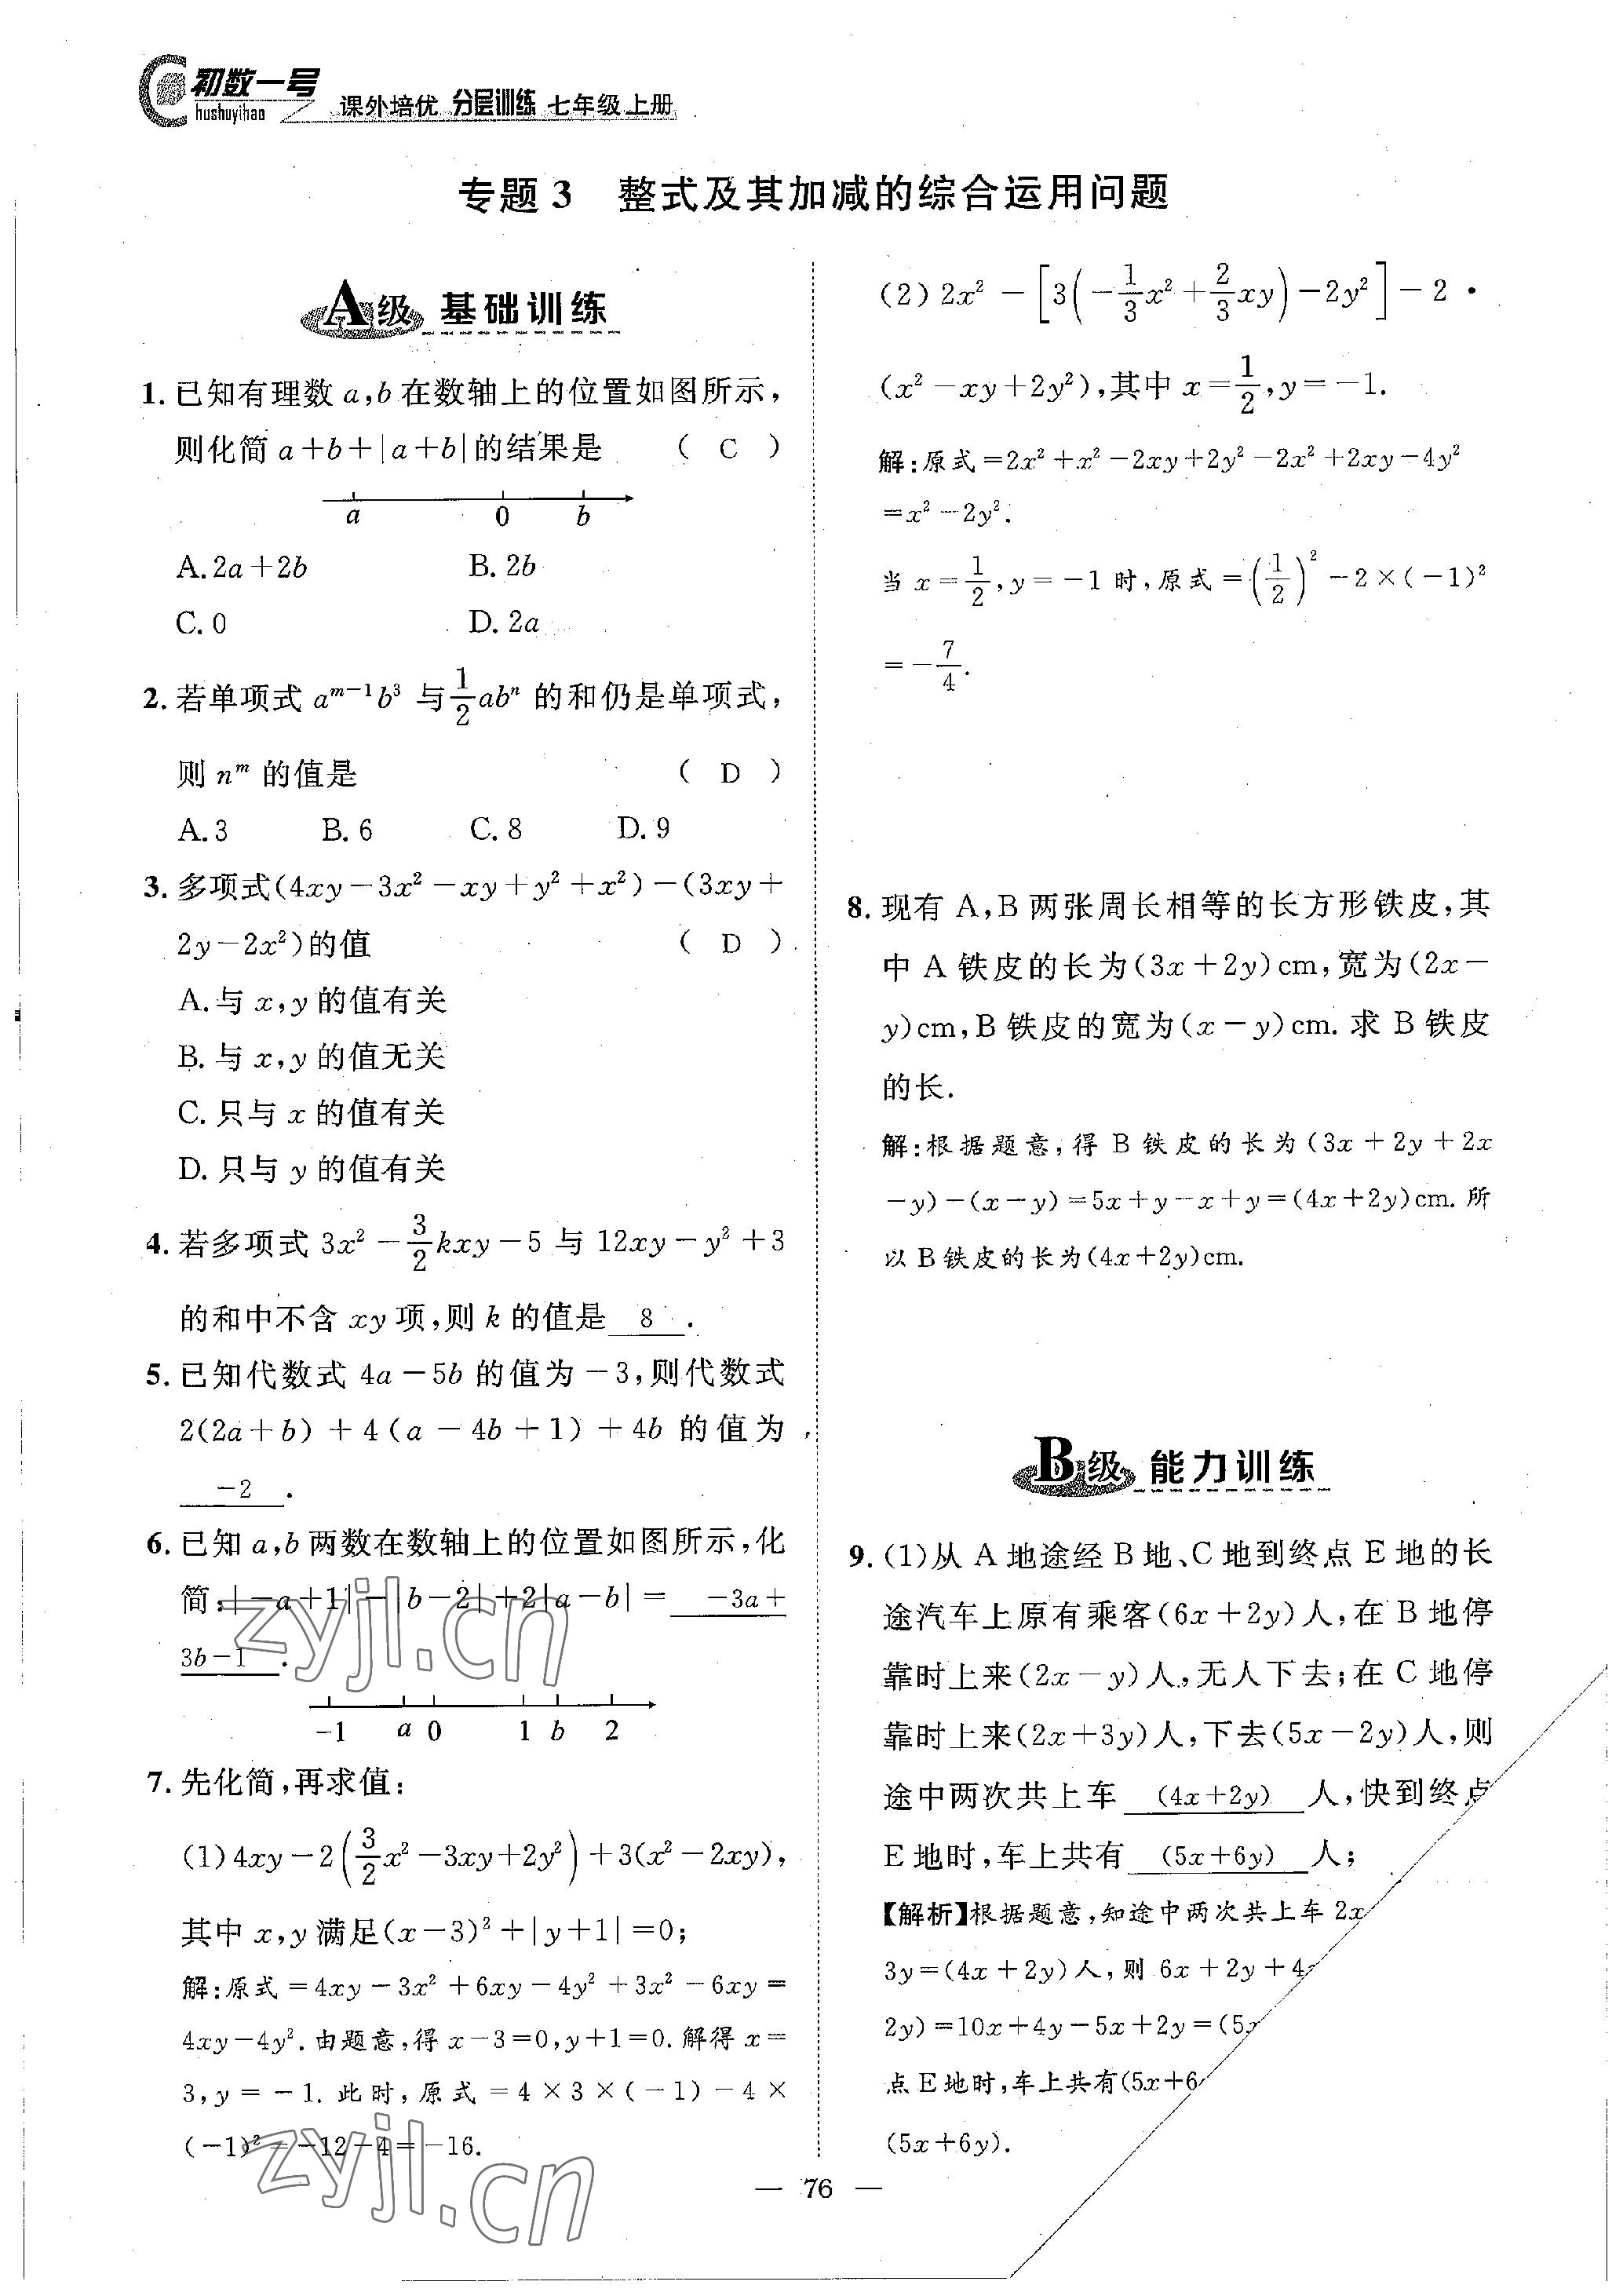 初数一号
hushuyihao
课外培优 分层训练 七年级上册
专题 3 整式及其加减的综合运用问题
A级 基础训练
1. 已知有理数 a,b 在数轴上的位置如图所示,
则化简 a+b+|a+b| 的结果是 ( C )
a 0 b
A. 2a+2b B. 2b
C. 0 D. 2a
2. 若单项式 a^{m-1}b³ 与 \frac{1}{2}abⁿ 的和仍是单项式,
则 n^m 的值是 ( D )
A. 3 B. 6 C. 8 D. 9
3. 多项式(4xy-3x²-xy+y²+x²)-(3xy+
2y-2x²)的值 ( D )
A. 与 x,y 的值有关
B. 与 x,y 的值无关
C. 只与 x 的值有关
D. 只与 y 的值有关
4. 若多项式 3x²-\frac{3}{2}kxy-5 与 12xy-y²+3
的和中不含 xy 项,则 k 的值是 8 .
5. 已知代数式 4a-5b 的值为 -3,则代数式
2(2a+b)+4(a-4b+1)+4b 的值为
-2 .
6. 已知 a,b 两数在数轴上的位置如图所示,化
简:|-a+1|-|b-2|+2|a-b|= -3a+
3b-1 .
-1 a 0 1 b 2
7. 先化简,再求值:
(1)4xy-2(\frac{3}{2}x²-3xy+2y²)+3(x²-2xy),
其中 x,y 满足(x-3)²+|y+1|=0;
解:原式=4xy-3x²+6xy-4y²+3x²-6xy=
4xy-4y². 由题意,得 x-3=0,y+1=0. 解得 x=
3,y=-1. 此时,原式=4×3×(-1)-4×
(-1)²=-12-4=-16.
(2)2x²-[3(-\frac{1}{3}x²+\frac{2}{3}xy)-2y²]-2·
(x²-xy+2y²),其中 x=\frac{1}{2},y=-1.
解:原式=2x²+x²-2xy+2y²-2x²+2xy-4y²
=x²-2y².
当 x=\frac{1}{2},y=-1 时,原式=(\frac{1}{2})²-2×(-1)²
=-\frac{7}{4}.
8. 现有 A,B 两张周长相等的长方形铁皮,其
中 A 铁皮的长为(3x+2y)cm,宽为(2x-
y)cm,B 铁皮的宽为(x-y)cm. 求 B 铁皮
的长.
解:根据题意,得 B 铁皮的长为(3x+2y+2x
-y)-(x-y)=5x+y-x+y=(4x+2y)cm. 所
以 B 铁皮的长为(4x+2y)cm.
B级 能力训练
9. (1)从 A 地途经 B 地、C 地到终点 E 地的长
途汽车上原有乘客(6x+2y)人,在 B 地停
靠时上来(2x-y)人,无人下去;在 C 地停
靠时上来(2x+3y)人,下去(5x-2y)人,则
途中两次共上车 (4x+2y) 人,快到终点
E 地时,车上共有 (5x+6y) 人;
【解析】根据题意,知途中两次共上车 2x
3y=(4x+2y)人,则 6x+2y+4
2y)=10x+4y-5x+2y=(5x
点 E 地时,车上共有(5x+6
(5x+6y).
— 76 —
zyjl.cn
zyjl.cn